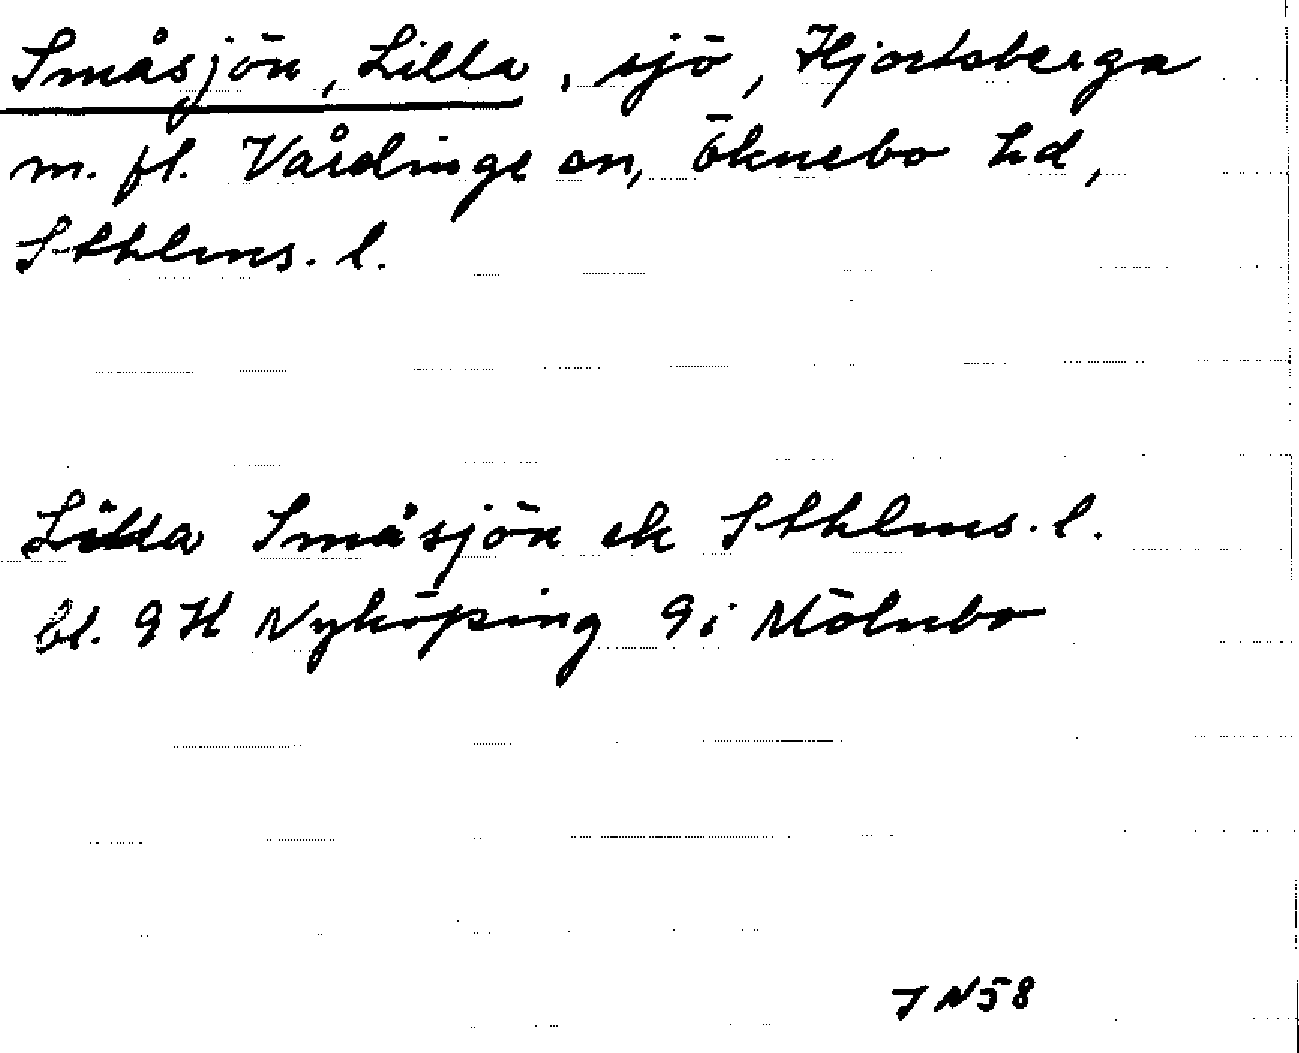 Småsjön, Lilla, sjö, Hjortsberga
m. fl. Vårdinge sn, Öknebo hd,
Sthlms. l.
Lilla Småsjön ek Sthlms. l.
bl. 9H Nyköping 9i Mölnbo
JN58